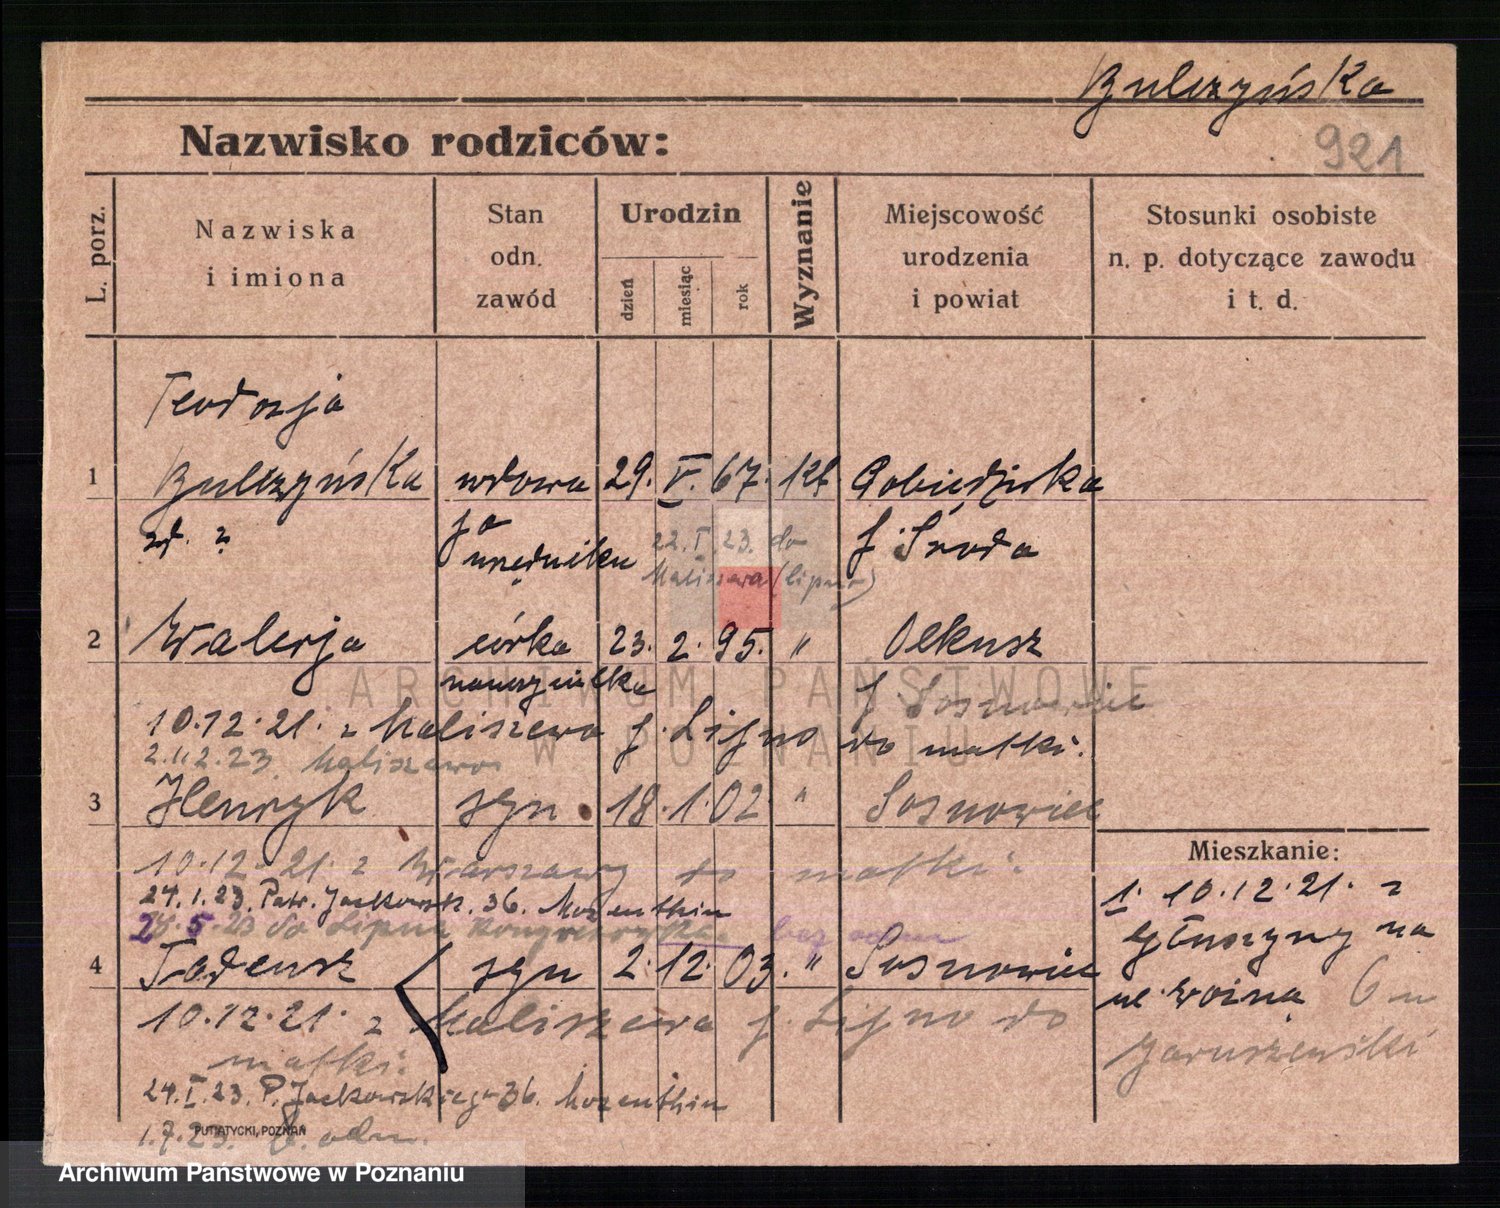 Bulczyńska
921
Nazwisko rodziców:
L. porz.
Nazwiska
i imiona
Stan
odn.
zawód
Urodzin
dzień
miesiąc
rok
Wyznanie
Miejscowość
urodzenia
i powiat
Stosunki osobiste
n. p. dotyczące zawodu
i t. d.
Teodozja
1 Bulczyńska wdowa 29. V. 67. kt Pobiedziska
zd. ? po
urzędniku p. Środa
22. I. 23. do
Maliszewa (Lipno)
2 Walerja córka 23. 2. 95. " Olkusz
nauczycielka
p. Sosnowiec
10.12.21. z Maliszewa p. Lipno do matki.
2.11.2.23. Maliszewo
3 Henryk syn 18. 1. 02 " Sosnowiec
10.12.21. z Warszawy do matki.
24.1.23. Patr. Jackowsk. 36. Mozenthin
28.5.23 do Lipna Kongresówka bez odm
4 Tadeusz syn 2. 12. 03. " Sosnowiec
10.12.21. z Maliszewa p. Lipno do
matki.
24.I.23. P. Jackowskiego 36. Mozenthin
1.7.23. b. odm.
PUTIATYCKI, POZNAŃ
Mieszkanie:
1. 10.12.21. z
Głuszyny na
ul. Woźną 6 u
Jaruszewski
ARCHIWUM PAŃSTWOWE
W POZNANIU
Archiwum Państwowe w Poznaniu